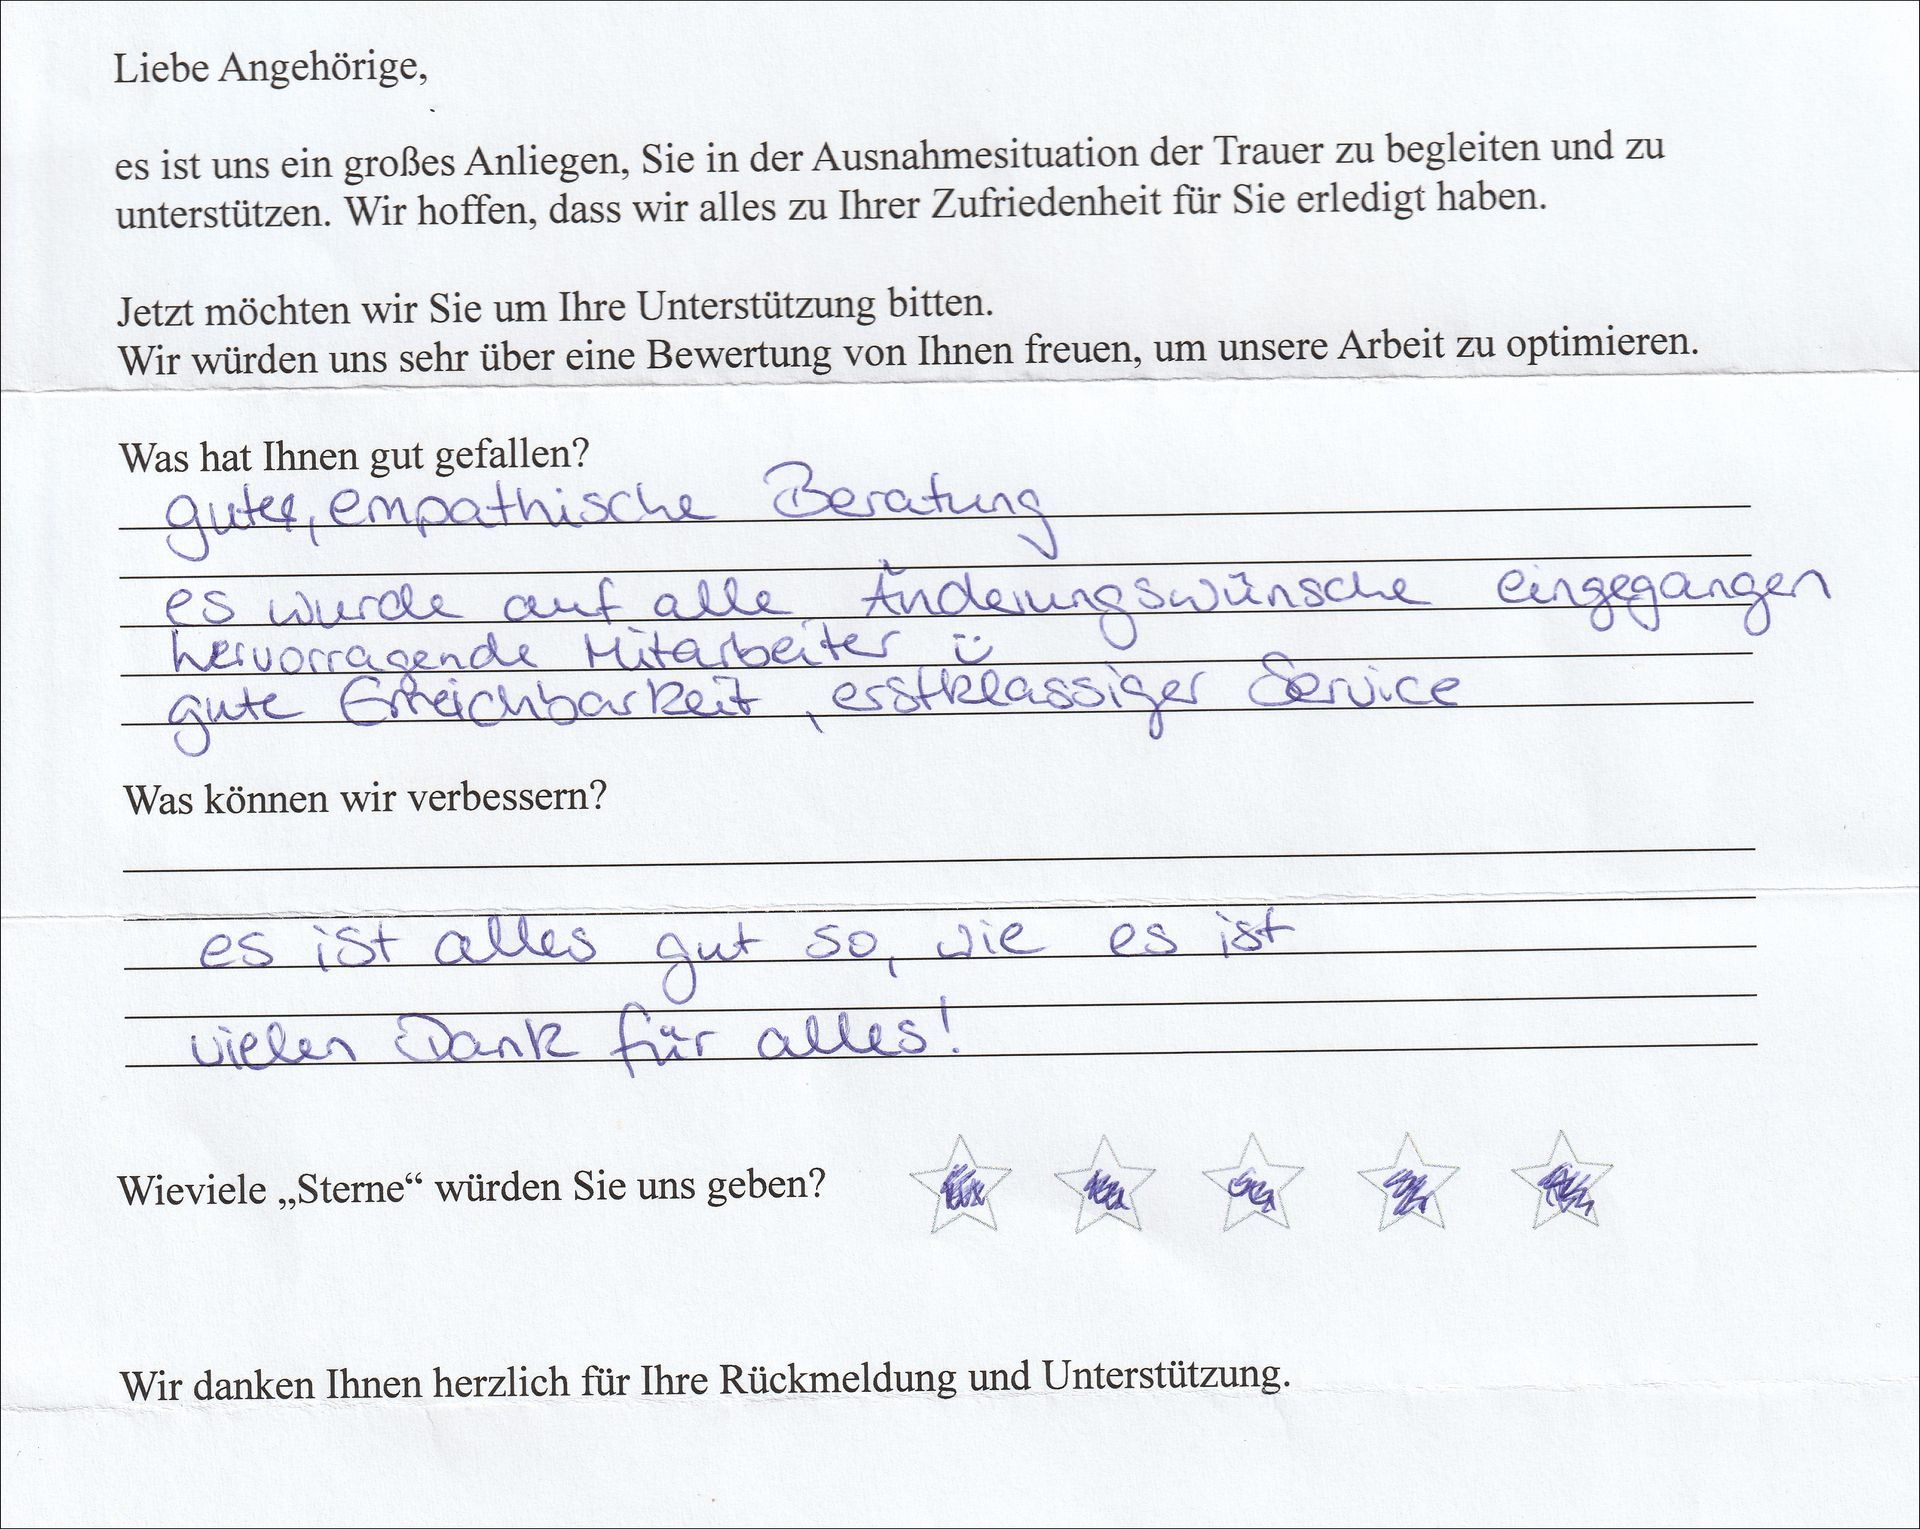 Liebe Angehörige,
es ist uns ein großes Anliegen, Sie in der Ausnahmesituation der Trauer zu begleiten und zu
unterstützen. Wir hoffen, dass wir alles zu Ihrer Zufriedenheit für Sie erledigt haben.
Jetzt möchten wir Sie um Ihre Unterstützung bitten.
Wir würden uns sehr über eine Bewertung von Ihnen freuen, um unsere Arbeit zu optimieren.
Was hat Ihnen gut gefallen?
gute, empathische Beratung
es wurde auf alle Änderungswünsche eingegangen
hervorragende Mitarbeiter ü
gute Erreichbarkeit, erstklassiger Service
Was können wir verbessern?
es ist alles gut so, wie es ist
vielen Dank für alles!
Wieviele „Sterne“ würden Sie uns geben?
Wir danken Ihnen herzlich für Ihre Rückmeldung und Unterstützung.